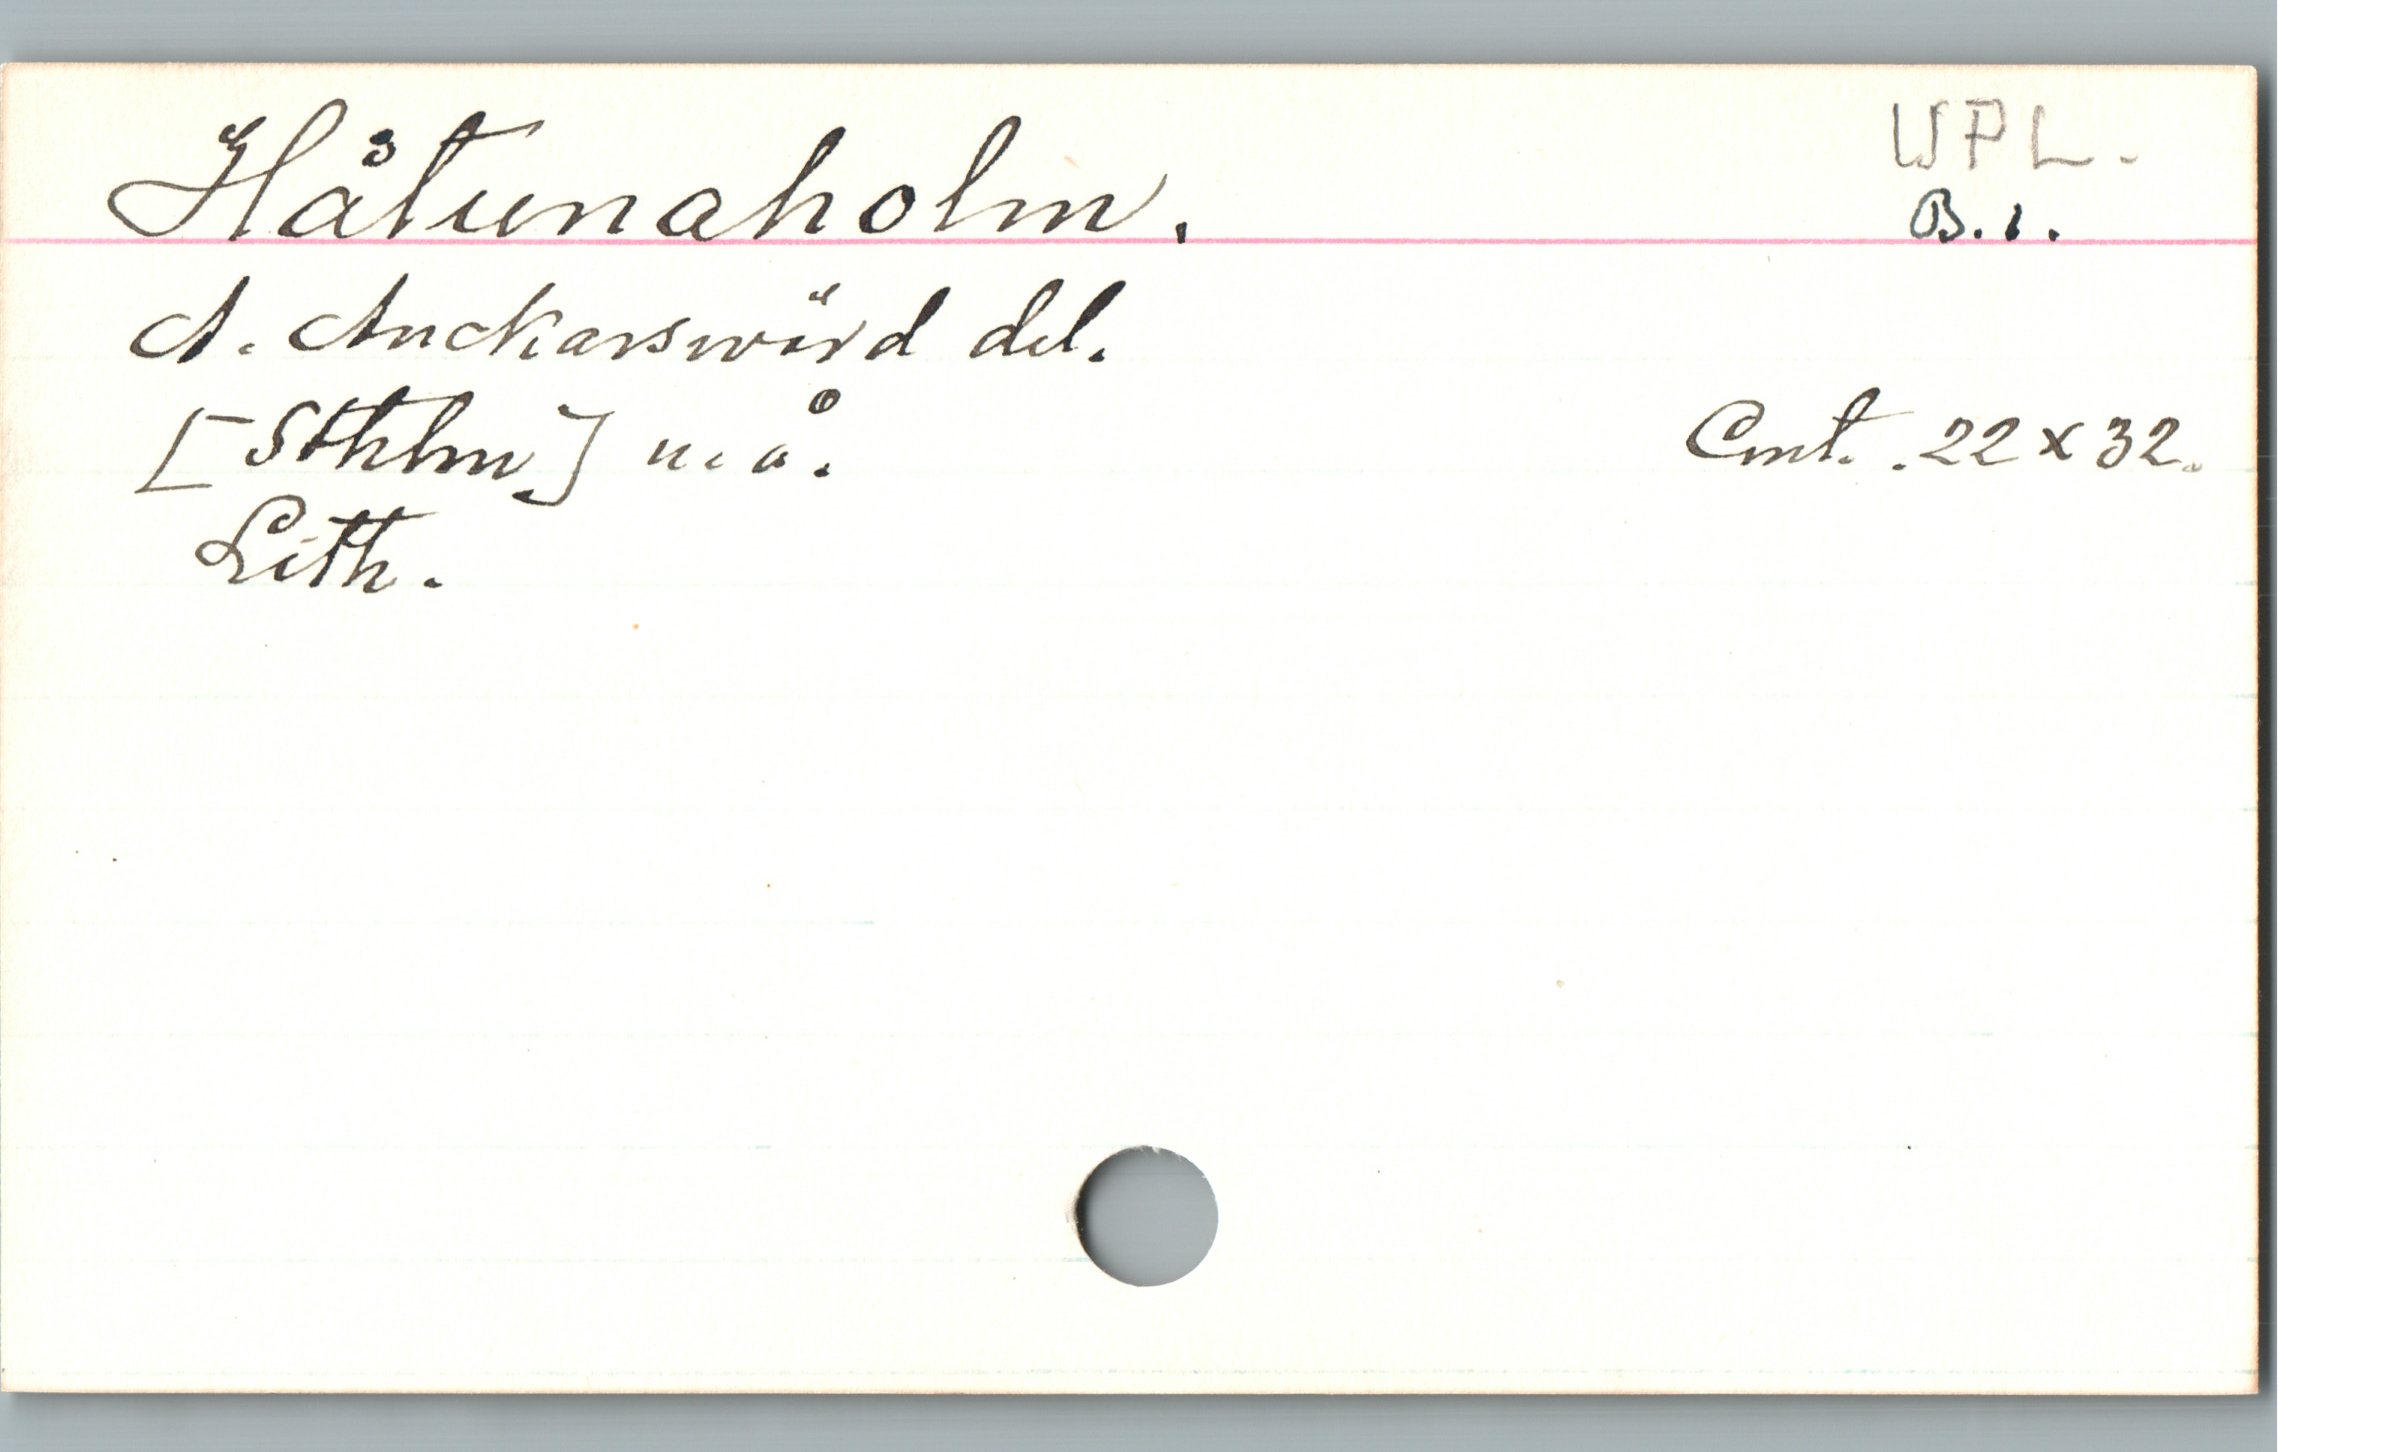 Håtunaholm.
WPL.
B.1.
A. Anckarswärd del.
[Sthlm.] u.å.
Cmt. 22 x 32.
Lith.